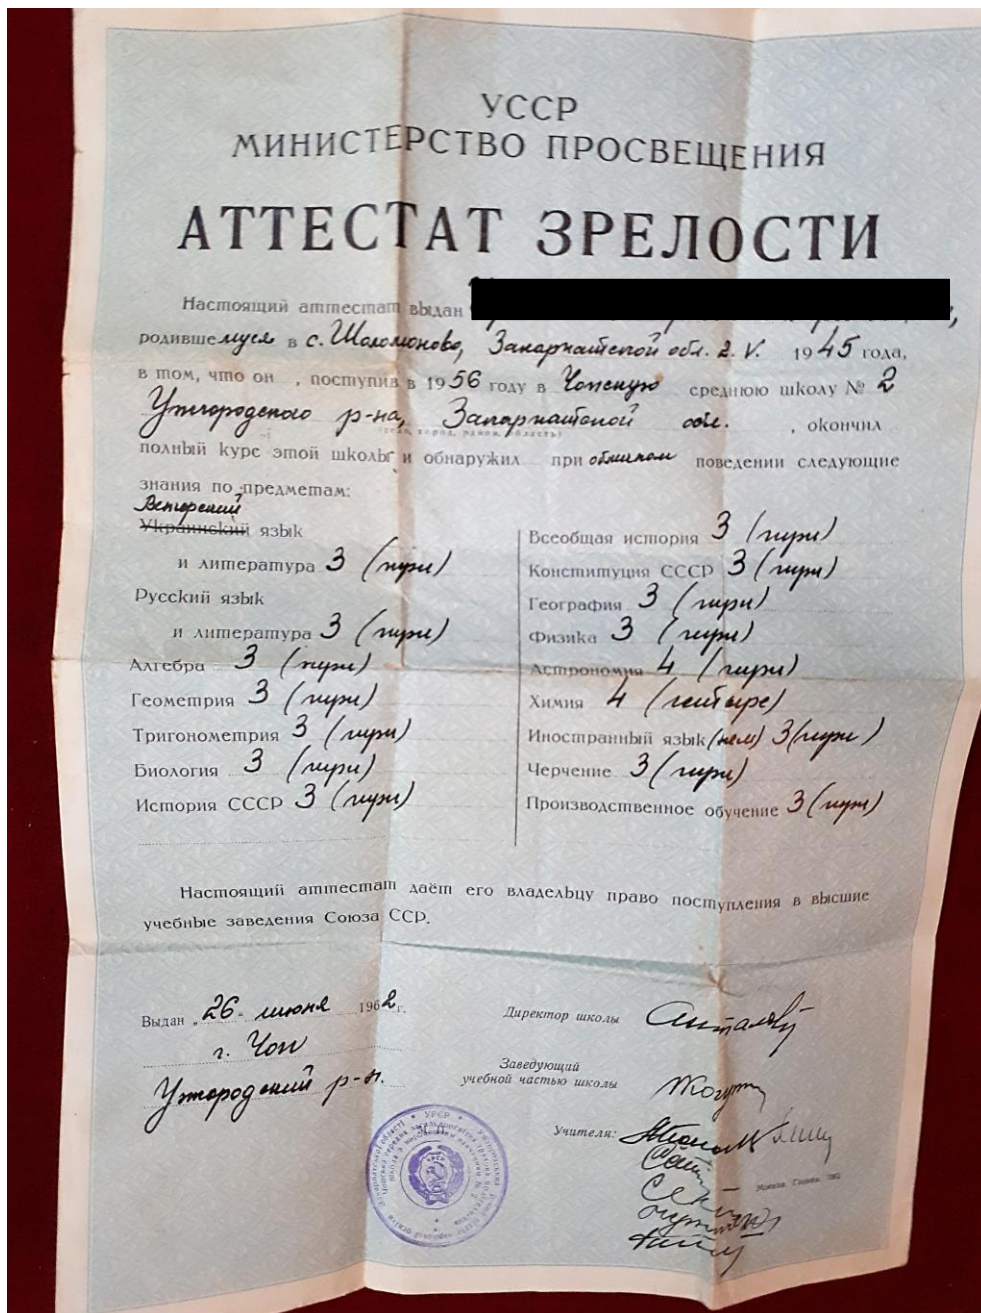 УССР
МИНИСТЕРСТВО ПРОСВЕЩЕНИЯ
АТТЕСТАТ ЗРЕЛОСТИ
Настоящий аттестат выдан
родившемуся в с. Шоломоново, Закарпатской обл. 2. V. 1945 года,
в том, что он , поступив в 1956 году в Чопскую среднюю школу № 2
Ужгородского р-на, Закарпатской обл. , окончил
(село, город, район, область)
полный курс этой школы и обнаружил при отличном поведении следующие
знания по предметам:
Венгерский
Украинский язык
и литература 3 (три)
Русский язык
и литература 3 (три)
Алгебра 3 (три)
Геометрия 3 (три)
Тригонометрия 3 (три)
Биология 3 (три)
История СССР 3 (три)
Всеобщая история 3 (три)
Конституция СССР 3 (три)
География 3 (три)
Физика 3 (три)
Астрономия 4 (три)
Химия 4 (четыре)
Иностранный язык (нем) 3 (три)
Черчение 3 (три)
Производственное обучение 3 (три)
Настоящий аттестат даёт его владельцу право поступления в высшие
учебные заведения Союза ССР.
Выдан „26" июня 1962 г.
г. Чоп
Ужгородский р-н.
Директор школы
Заведующий
учебной частью школы
Учителя:
М. П.
УРСР
Москва. Гознак. 1962